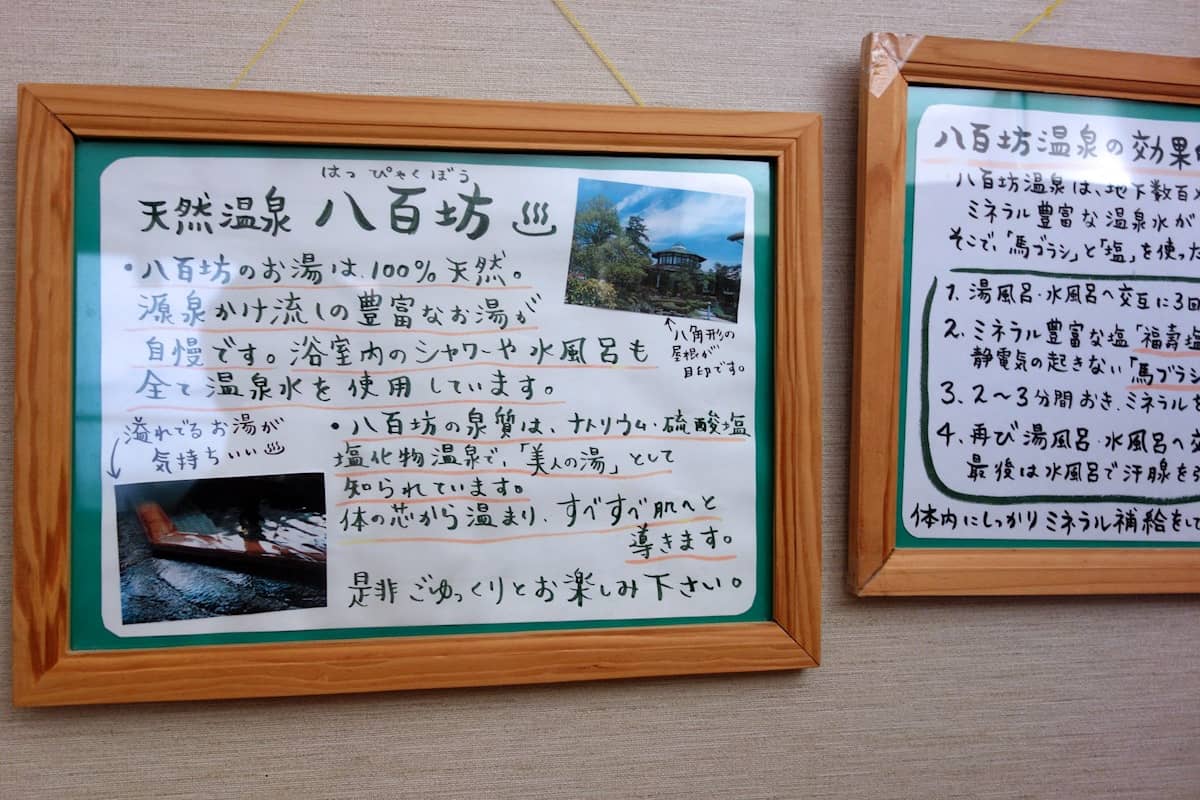 はっぴゃくぼう
天然温泉 八百坊♨
・八百坊のお湯は、100%天然。
源泉かけ流しの豊富なお湯が
自慢です。浴室内のシャワーや水風呂も
全て温泉水を使用しています。
↑八角形の
屋根が
目印です。
溢れでるお湯が
気持ちいい♨
・八百坊の泉質は、ナトリウム・硫酸塩
塩化物温泉で、「美人の湯」として
知られています。
体の芯から温まり、すべすべ肌へと
導きます。
是非ごゆっくりとお楽しみ下さい。
八百坊温泉の効果
八百坊温泉は、地下数百
ミネラル豊富な温泉水が
そこで、「馬ブラシ」と「塩」を使った
1. 湯風呂・水風呂へ交互に3回
2. ミネラル豊富な塩「福寿塩
静電気の起きない「馬ブラシ
3. 2〜3分間おき、ミネラルを
4. 再び湯風呂・水風呂へ交
最後は水風呂で汗腺を
体内にしっかりミネラル補給を